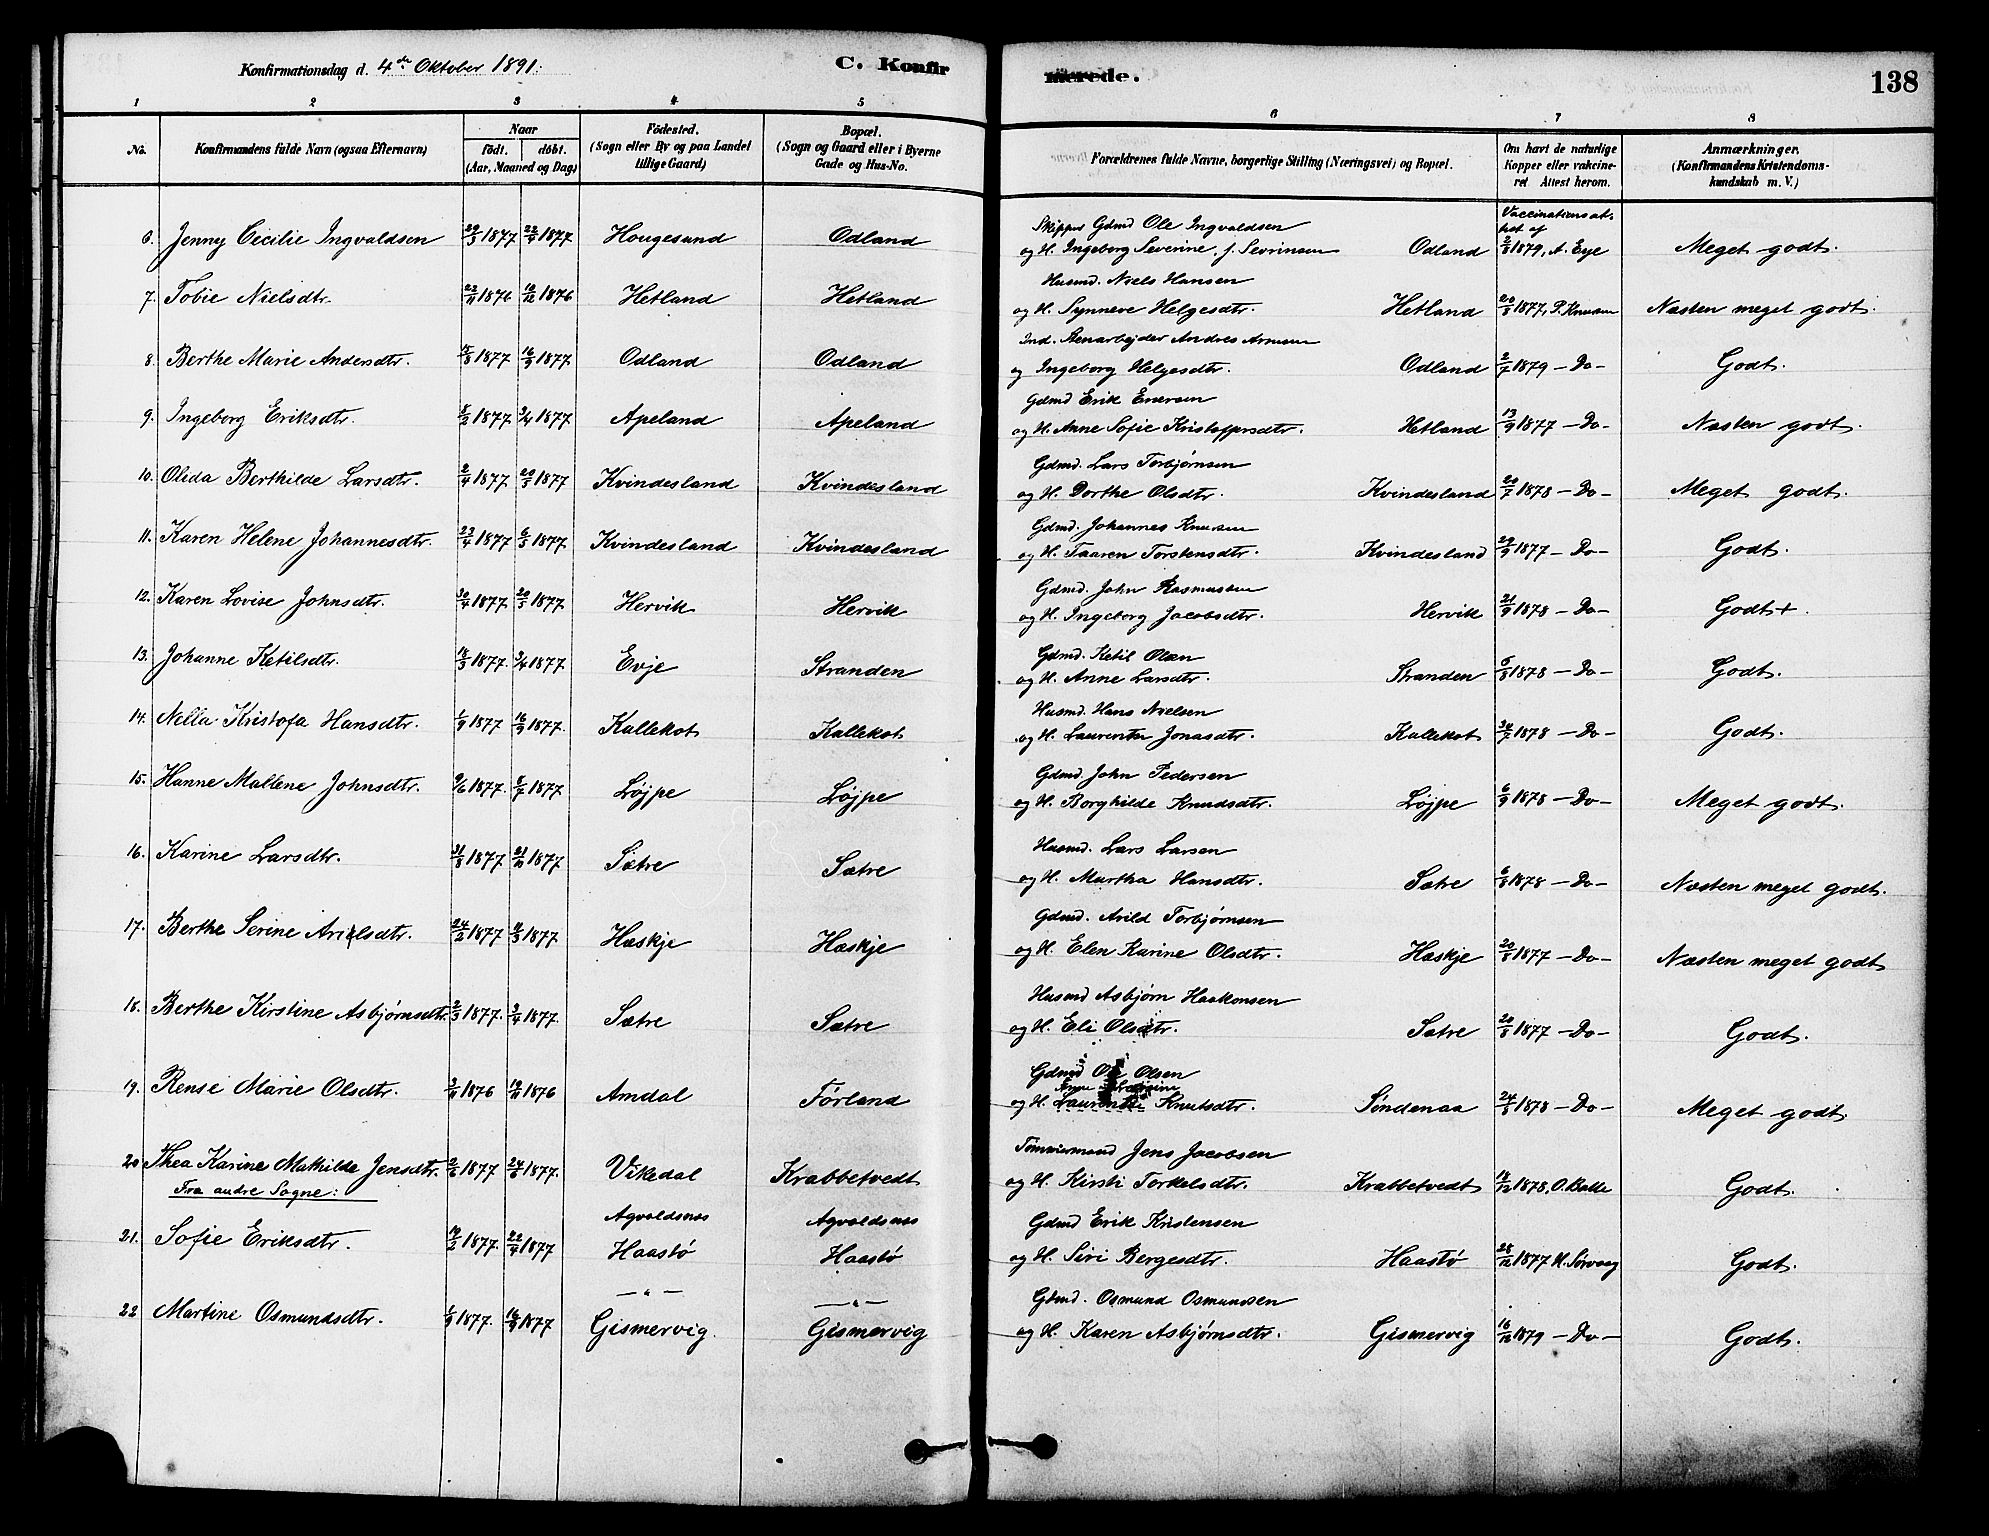 Konfirmationsdag d. 4de Oktober 1891.
C. Konfirmerede.
138
1 2 3 4 5 6 7 8
No. Konfirmandens fulde Navn (ogsaa Efternavn) Naar født. døbt. (Aar, Maaned og Dag) Fødested. (Sogn eller By og paa Landet tillige Gaard) Bopæl. (Sogn og Gaard eller i Byerne Gade og Hus-No. Forældrenes fulde Navne, borgerlige Stilling (Næringsvei) og Bopæl. Om havt de naturlige Kopper eller vakcineret Attest herom. Anmærkninger. (Konfirmandens Kristendomskundskab m. V.)
Skipper Gdmd Ole Ingvaldsen Vaccinationsattest af
6. Jenny Cecilie Ingvaldsen 20/3 1877 22/4 1877 Hougesund Odland og H. Ingeborg Severine, f. Sevrinsen Odland 2/8 1879, A. Eye Meget godt.
Husmd. Niels Hansen
7. Tobie Nielsdtr. 23/11 1876 10/12 1876 Hetland Hetland og H. Synneve Helgesdtr. Hetland 20/8 1877, P. Knusen Næsten meget godt.
Ind. Stenarbejder Andres Arnesen
8. Berthe Marie Andersdtr. 15/8 1877 16/9 1877 Odland Odland og Ingeborg Helgesdtr. Odland 2/7 1879 - Do - Godt.
Gdmd Erik Enersen
9. Ingeborg Eriksdtr. 8/2 1877 3/4 1877 Apeland Apeland og H. Anne Sofie Kristoffersdtr. Hetland 13/9 1877 - Do - Næsten godt.
Gdmd. Lars Torbjørnsen
10. Olida Berthilde Larsdtr. 2/4 1877 20/5 1877 Kvindesland Kvindesland og H. Dorthe Olsdtr. Kvindesland 20/7 1878 - Do - Meget godt.
Gdmd. Johannes Knutsen
11. Karen Helene Johannesdtr. 23/4 1877 6/5 1877 Kvindesland Kvindesland og H. Taaren Torstensdtr. Kvindesland 29/9 1877 - Do - Godt.
Gdmd. John Rasmussen
12. Karen Lovise Johnsdtr. 30/4 1877 20/5 1877 Hervik Hervik og H. Ingeborg Jacobsdtr. Hervik 21/9 1878 - Do - Godt +.
Gdmd. Ketil Olsen
13. Johanne Ketilsdtr. 18/3 1877 3/4 1877 Evje Stranden og H. Anne Larsdtr. Stranden 6/8 1878 - Do - Godt.
Husmd. Hans Nielsen
14. Nella Kristofa Hansdtr. 1/9 1877 16/9 1877 Kallekot Kallekot og H. Laurentse Jonasdtr. Kallekot 30/7 1878 - Do - Godt.
Gdmd. John Pedersen
15. Hanne Mallene Johnsdtr. 9/6 1877 8/7 1877 Løjpe Løjpe og H. Borghilde Knudsdtr. Løjpe 6/9 1878 - Do - Meget godt.
Husmd. Lars Larsen
16. Karine Larsdtr. 31/8 1877 21/10 1877 Sætre Sætre og H. Martha Hansdtr. Sætre 6/8 1878 - Do - Næsten meget godt.
Gdmd. Arild Torbjørnsen
17. Berthe Serine Arilsdtr. 24/2 1877 11/3 1877 Hæskje Hæskje og H. Elen Karine Olsdtr. Hæskje 20/8 1877 - Do - Næsten meget godt
Husmd Asbjørn Haakonsen
18. Berthe Kirstine Asbjørnsdtr. 2/3 1877 3/4 1877 Sætre Sætre og H. Eli Olsdtr. Sætre 20/8 1877 - Do - Godt.
Gdmd Ole Olsen
19. Rense Marie Olsdtr. 3/11 1876 19/11 1876 Amdal Førland og H. Knutsdtr. Søndenaa 24/8 1878 - Do - Meget godt.
Tømmermand Jens Jacobsen
20 Thea Karine Mathilde Jensdtr. 2/6 1877 24/6 1877 Vikedal Krabbetvedt og H. Kirsti Torkelsdtr. Krabbetvedt 14/12 1878, O. Kalle Godt.
Fra andre Sogne:
Agvaldsnes Agvaldsnes Gdmd Erik Kristensen
21. Sofie Eriksdtr. 19/2 1877 22/4 1877 Haastø Haastø og H. Siri Bergesdtr. Haastø 28/12 1877 H. Sørvaag Godt.
- " - - " - Gdmd. Osmund Osmundsen
22 Martine Osmundsdtr. 1/9 1877 16/9 1877 Gismervig. Gismervig og H. Karen Asbjørnsdtr. Gismervig 16/12 1879 - Do - Godt.